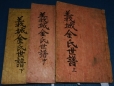 義城金氏世譜 上
義城金氏世譜 下
義城金氏世譜